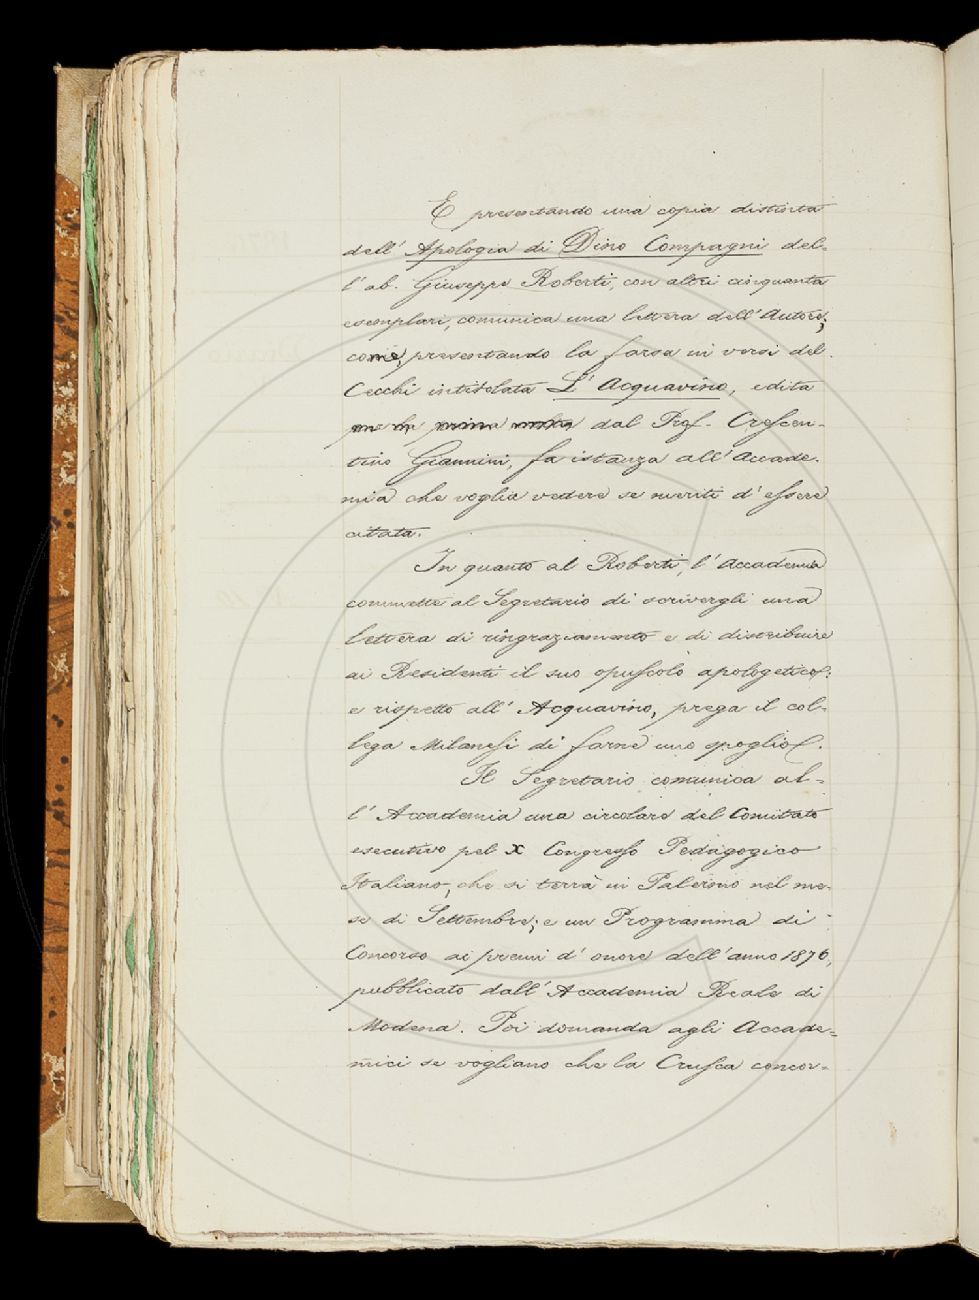 E presentando una copia distinta
dell' Apologia di Dino Compagni del-
l' ab. Giuseppe Roberti, con altri cinquanta
esemplari, comunica una lettera dell' Autore;
come, presentando la farsa in versi del
Cecchi intitolata L' Acquavino, edita
dal Prof. Crescen-
tino Giannini, fa istanza all' Accade-
mia che voglia vedere se meriti d' essere
citata.
In quanto al Roberti, l' Accademia
commette al Segretario di scrivergli una
lettera di ringraziamento e di distribuire
ai Residenti il suo opuscolo apologetico:
e rispetto all' Acquavino, prega il col-
lega Milanesi di farne uno spoglio.
Il Segretario comunica al-
l' Accademia una circolare del Comitato
esecutivo pel X Congresso Pedagogico
Italiano, che si terrà in Palermo nel me-
se di Settembre; e un Programma di
Concorso ai premi d' onore dell' anno 1876,
pubblicato dall' Accademia Reale di
Modena. Poi domanda agli Accade-
mici se vogliano che la Crusca concor-